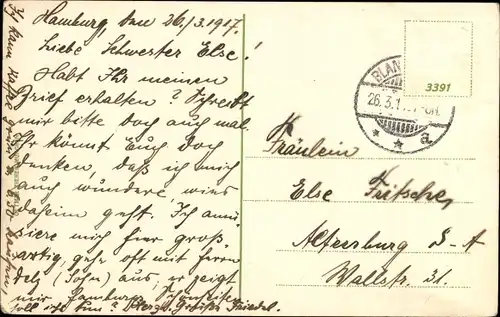 Hamburg, den 26/3.1917.
Liebe Schwester Else!
Habt Ihr meinen
Brief erhalten? Schreibt
mir bitte doch auch mal.
Ihr könnt Euch doch
denken, daß ich mich
auch wundere, wies
daheim geht. Ich amü-
siere mich hier groß-
artig, gehe oft mit Herrn
(Sohn) aus, er zeigt
mir Hamburgs Schönheiten.
Herzl. Grüße Friedel.
Ich kann
3391
BLAN
26.3.1
* * a
Fräulein
Else Fritsche,
Altenburg S-A
Wallstr. 31.